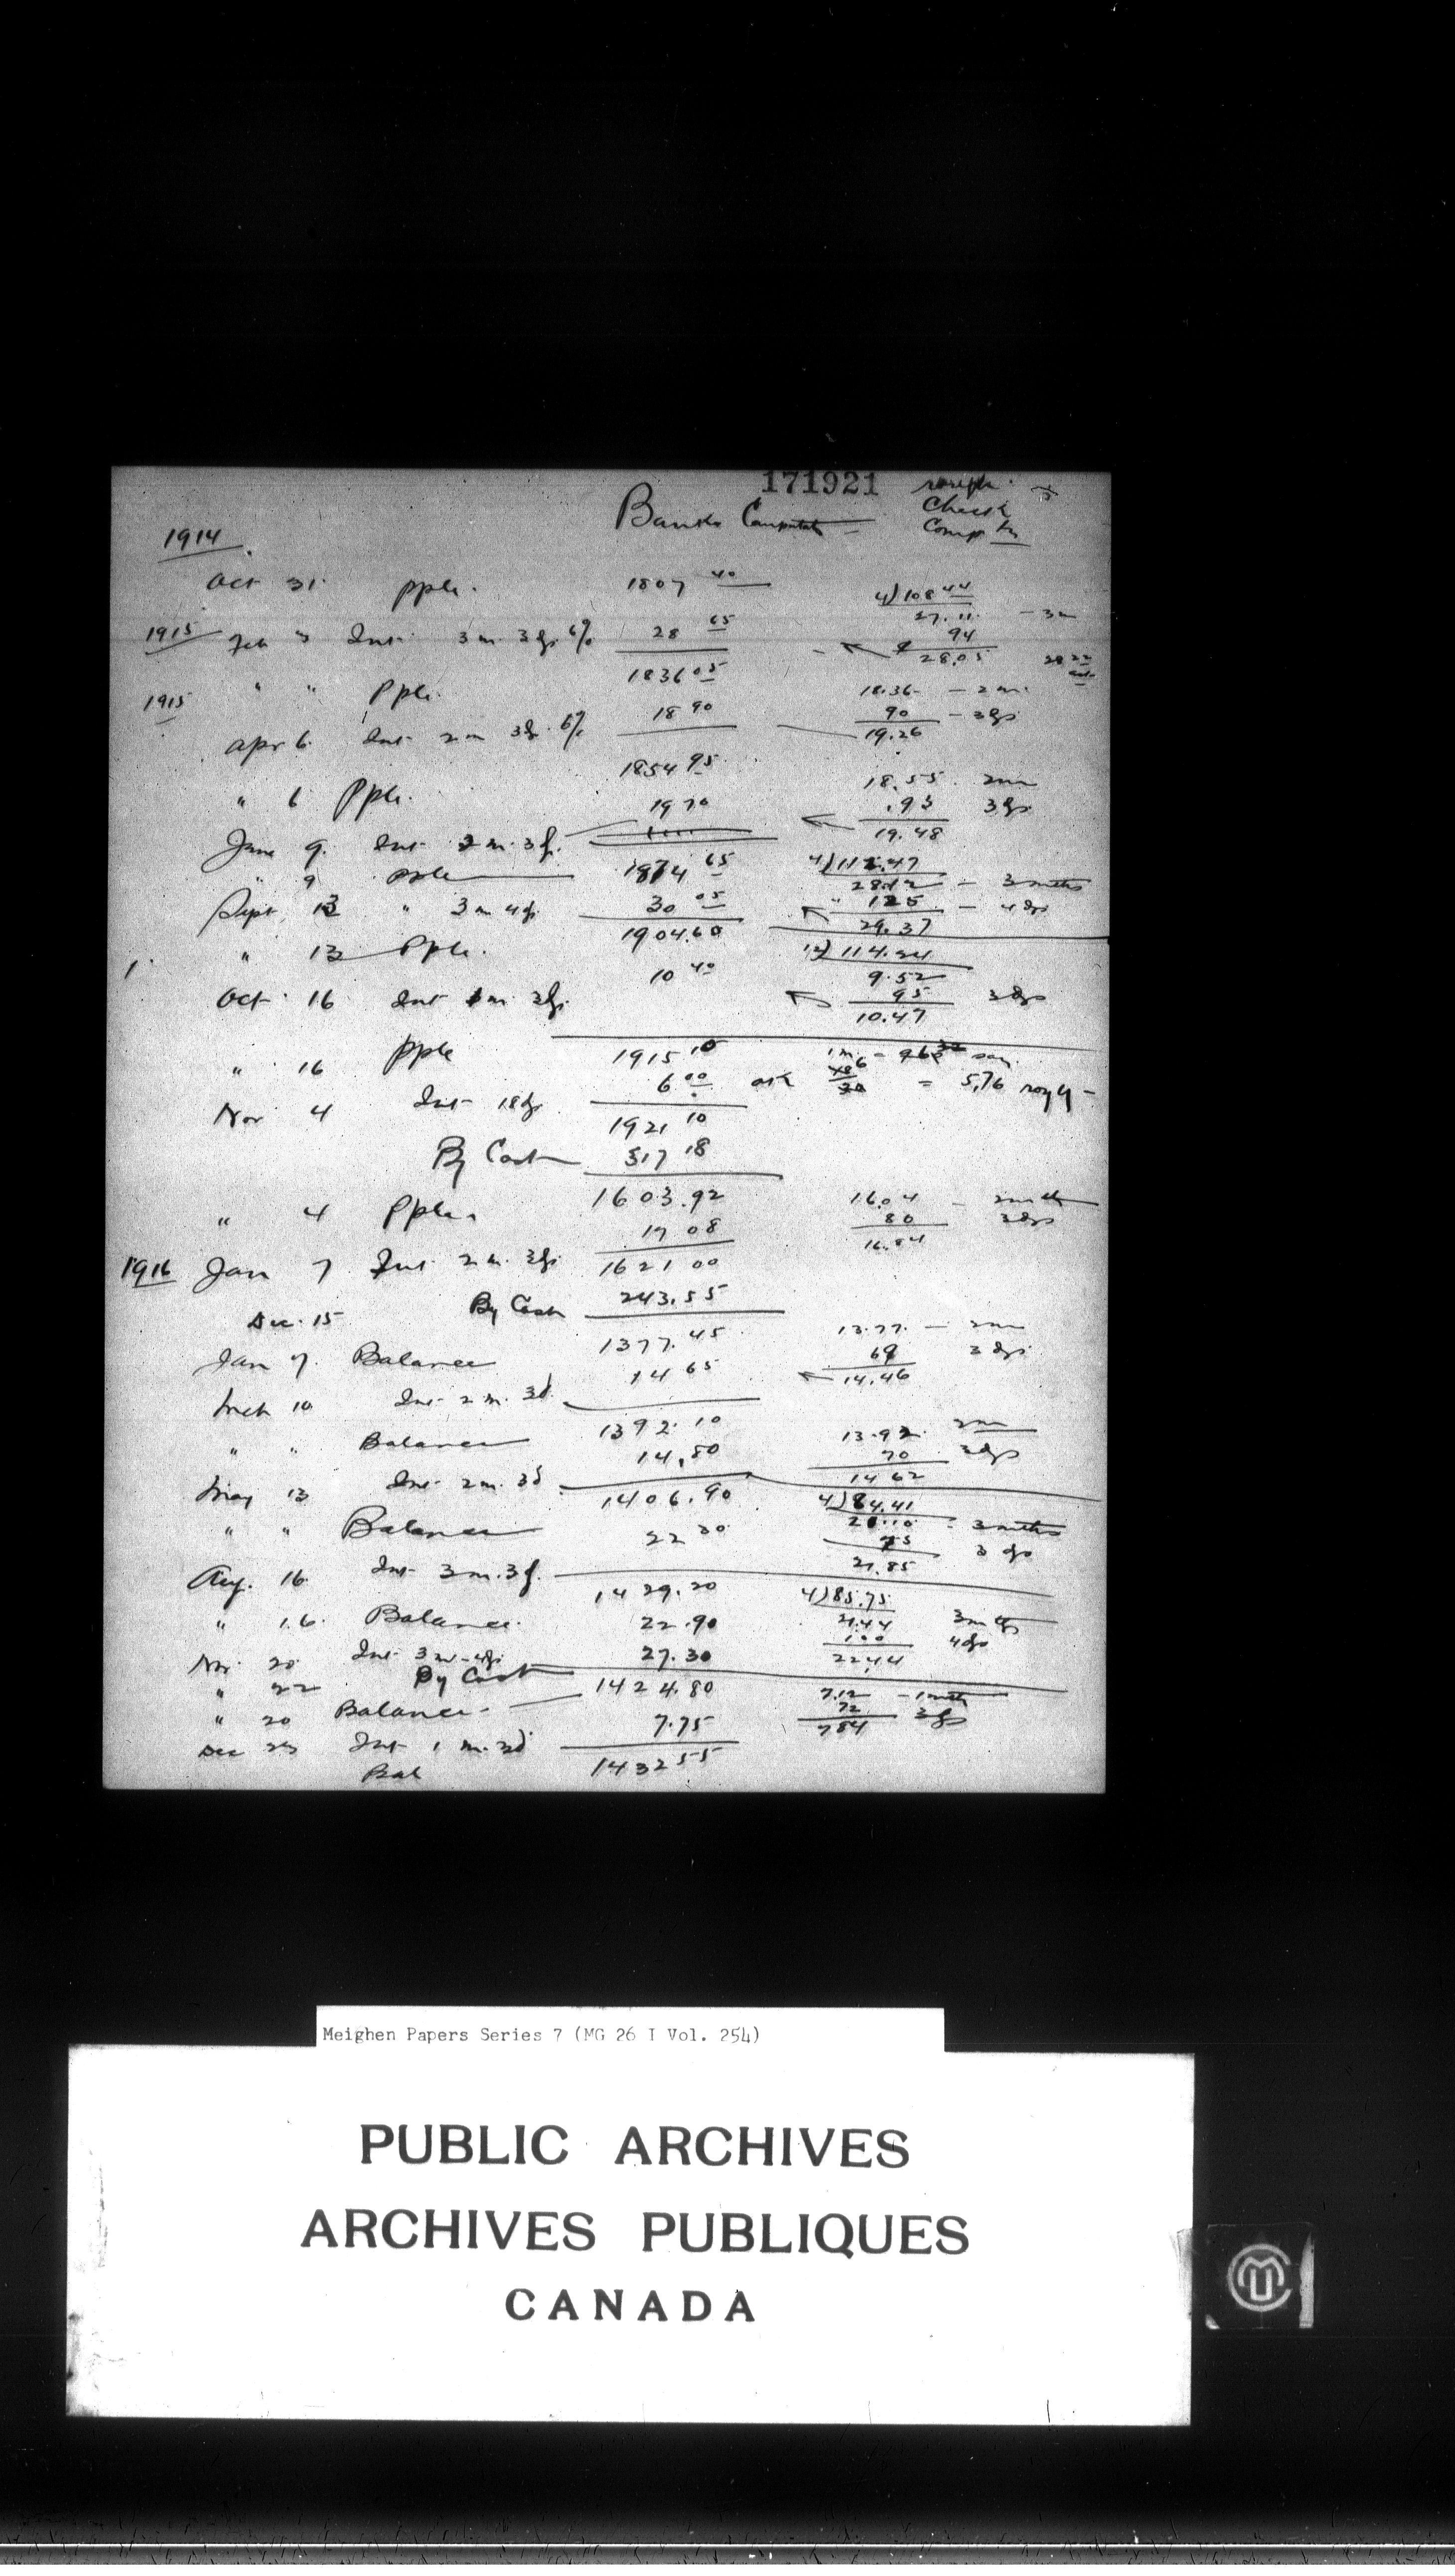 171921
Banks Computat
rough
Check
Comp
1914
Oct 31 pple. 1807 40 4)108 44
27.11 - 3m
1915 Feb 3 Int 3 m 3 ds 6% 28 65 94
28.05
" " pple. 1836 05 18.36 - 2 m.
1915 Apr 6 Int 2 m 3 ds 6% 18 90 90 - 3 ds
19.26
" 6 pple. 1854 95 18.55 2m
June 9. Int 2 m. 3 d. 19 70 .93 3 ds
19.48
" 9 pple 1874 65 4)112.47
28.12 - 3 mths
Sept 13 " 3 m 4 ds 30 05 1 25 - 4 ds
29.37
" 13 pple. 1904.60 12)114.24
9.52
Oct 16 Int 1 m. 3 ds. 10 40 95 3 ds
10.47
" 16 pple 1915 10 1 m. -
Nov 4 Int 18 ds 6 00 = 5.76
1921 10
By Cash 317 18
" 4 pple. 1603.92 16.04 2 mth
1916 Jan 7 Int 2 m. 3 ds 17 08 80 3 ds
16.84
1621 00
Dec. 15 By Cash 243.55
Jan 7. Balance 1377.45 13.77. - 2m
Mch 10 Int 2 m. 3 d 14 65 69 3 ds
14.46
" " Balance 1392.10 13.92 2m
May 13 Int 2 m. 3 d 14.80 70 3 ds
14 62
" " Balance 1406.90 4)84.41
21.10 - 3 mths
Aug. 16 Int 3 m. 3 d. 22 30 75 3 ds
21.85
" 16 Balance. 1429.20 4)85.75
21.44 3 mths
Nov 20 Int 3 m - 4 ds 22.90 1.00 4 ds
22.44
" 22 By Cash 27.30
" 20 Balance - 1424.80 7.12 - 1 mth
Dec 23 Int 1 m. 3 d 7.75 72 3 ds
7 84
Bal 1432 55
Meighen Papers Series 7 (MG 26 I Vol. 254)
PUBLIC ARCHIVES
ARCHIVES PUBLIQUES
CANADA